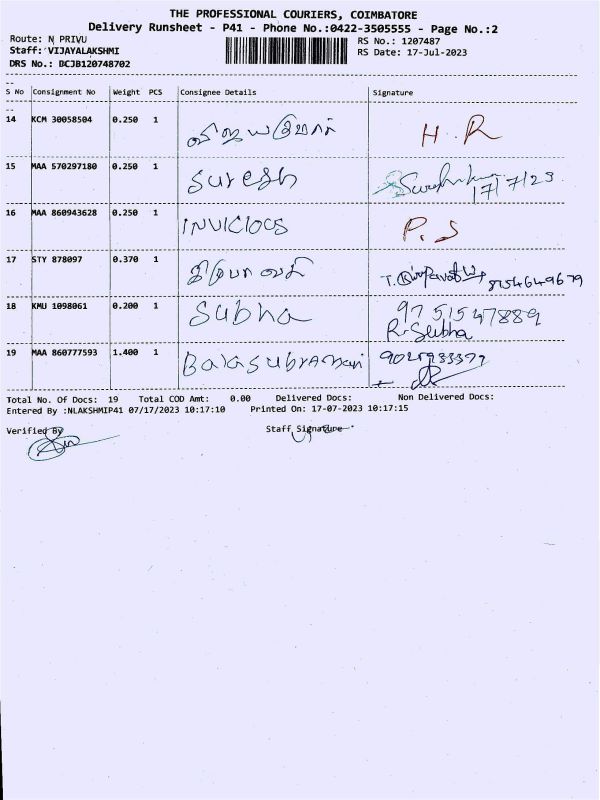 THE PROFESSIONAL COURIERS, COIMBATORE
Delivery Runsheet - P41 - Phone No.:0422-3505555 - Page No.:2
Route: N PRIVU
RS No.: 1207487
Staff: VIJAYALAKSHMI
RS Date: 17-Jul-2023
DRS No.: DCJB120748702
S No Consignment No Weight PCS Consignee Details Signature
14 KCM 30058504 0.250 1 H. R
15 MAA 570297180 0.250 1 Suresh 17/7/23
16 MAA 860943628 0.250 1 INVICIOUS P. S
17 STY 878097 0.370 1 8754649679
18 KMU 1098061 0.200 1 Subha 9751547889
R. Subha
19 MAA 860777593 1.400 1 Balasubramani
Total No. Of Docs: 19 Total COD Amt: 0.00 Delivered Docs: Non Delivered Docs:
Entered By :NLAKSHMIP41 07/17/2023 10:17:10 Printed On: 17-07-2023 10:17:15
Verified By Staff Signature